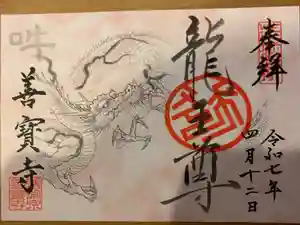 奉拝
令和七年
四月十二日
龍王尊
善寶寺